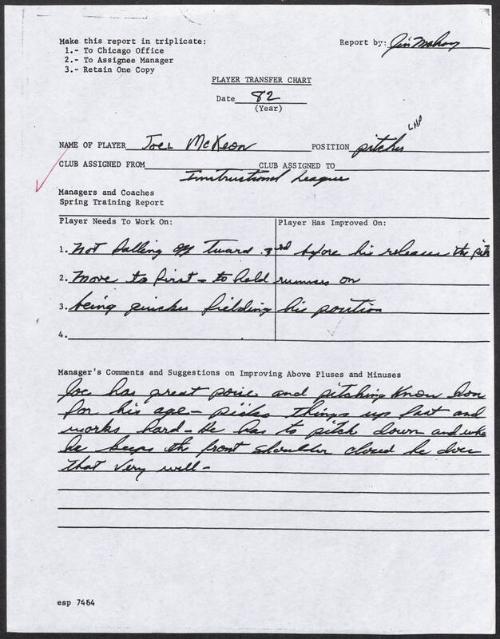 Make this report in triplicate:
1.- To Chicago Office
2.- To Assignee Manager
3.- Retain One Copy
Report by: Jim Mahoney
PLAYER TRANSFER CHART
Date 82
(Year)
NAME OF PLAYER Joel McKeon POSITION pitcher LHP
CLUB ASSIGNED FROM CLUB ASSIGNED TO
Instructional League
Managers and Coaches
Spring Training Report
Player Needs To Work On: Player Has Improved On:
1. Not falling off toward 3rd before he releases the
2. Move to first - to hold runners on
3. being quicker fielding his position
4.
Manager's Comments and Suggestions on Improving Above Pluses and Minuses
Joe has great poise and pitching know how
for his age - picks things up fast and
works hard - he has to pitch down and
he keeps the front shoulder closed he does
that very well -
esp 7464